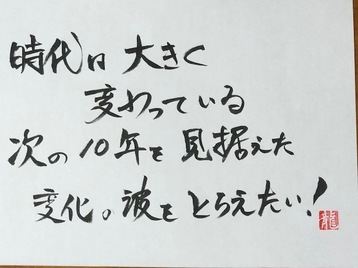 時代は大きく
変わっている
次の10年を見据えた
変化の波をとらえたい!
龍